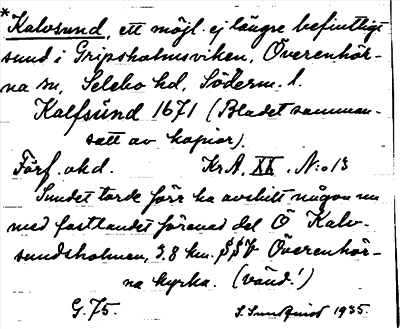 *Kalvsund, ett möjl. ej längre befintligt
sund i Gripsholmsviken, Överenhör-
na sn, Selebo hd, Söderm. l.
Kalfsund 1671 (Bladet samman-
satt av kopior).
Förf. okd. Kr.A. XX. N:o 13
Sundet torde förr ha avskilt någon nu
med fastlandet förenad del Ö Kalv-
sundsholmen, 3.8 km. Överenhör-
na kyrka. (vänd!)
G. 75. 1935.